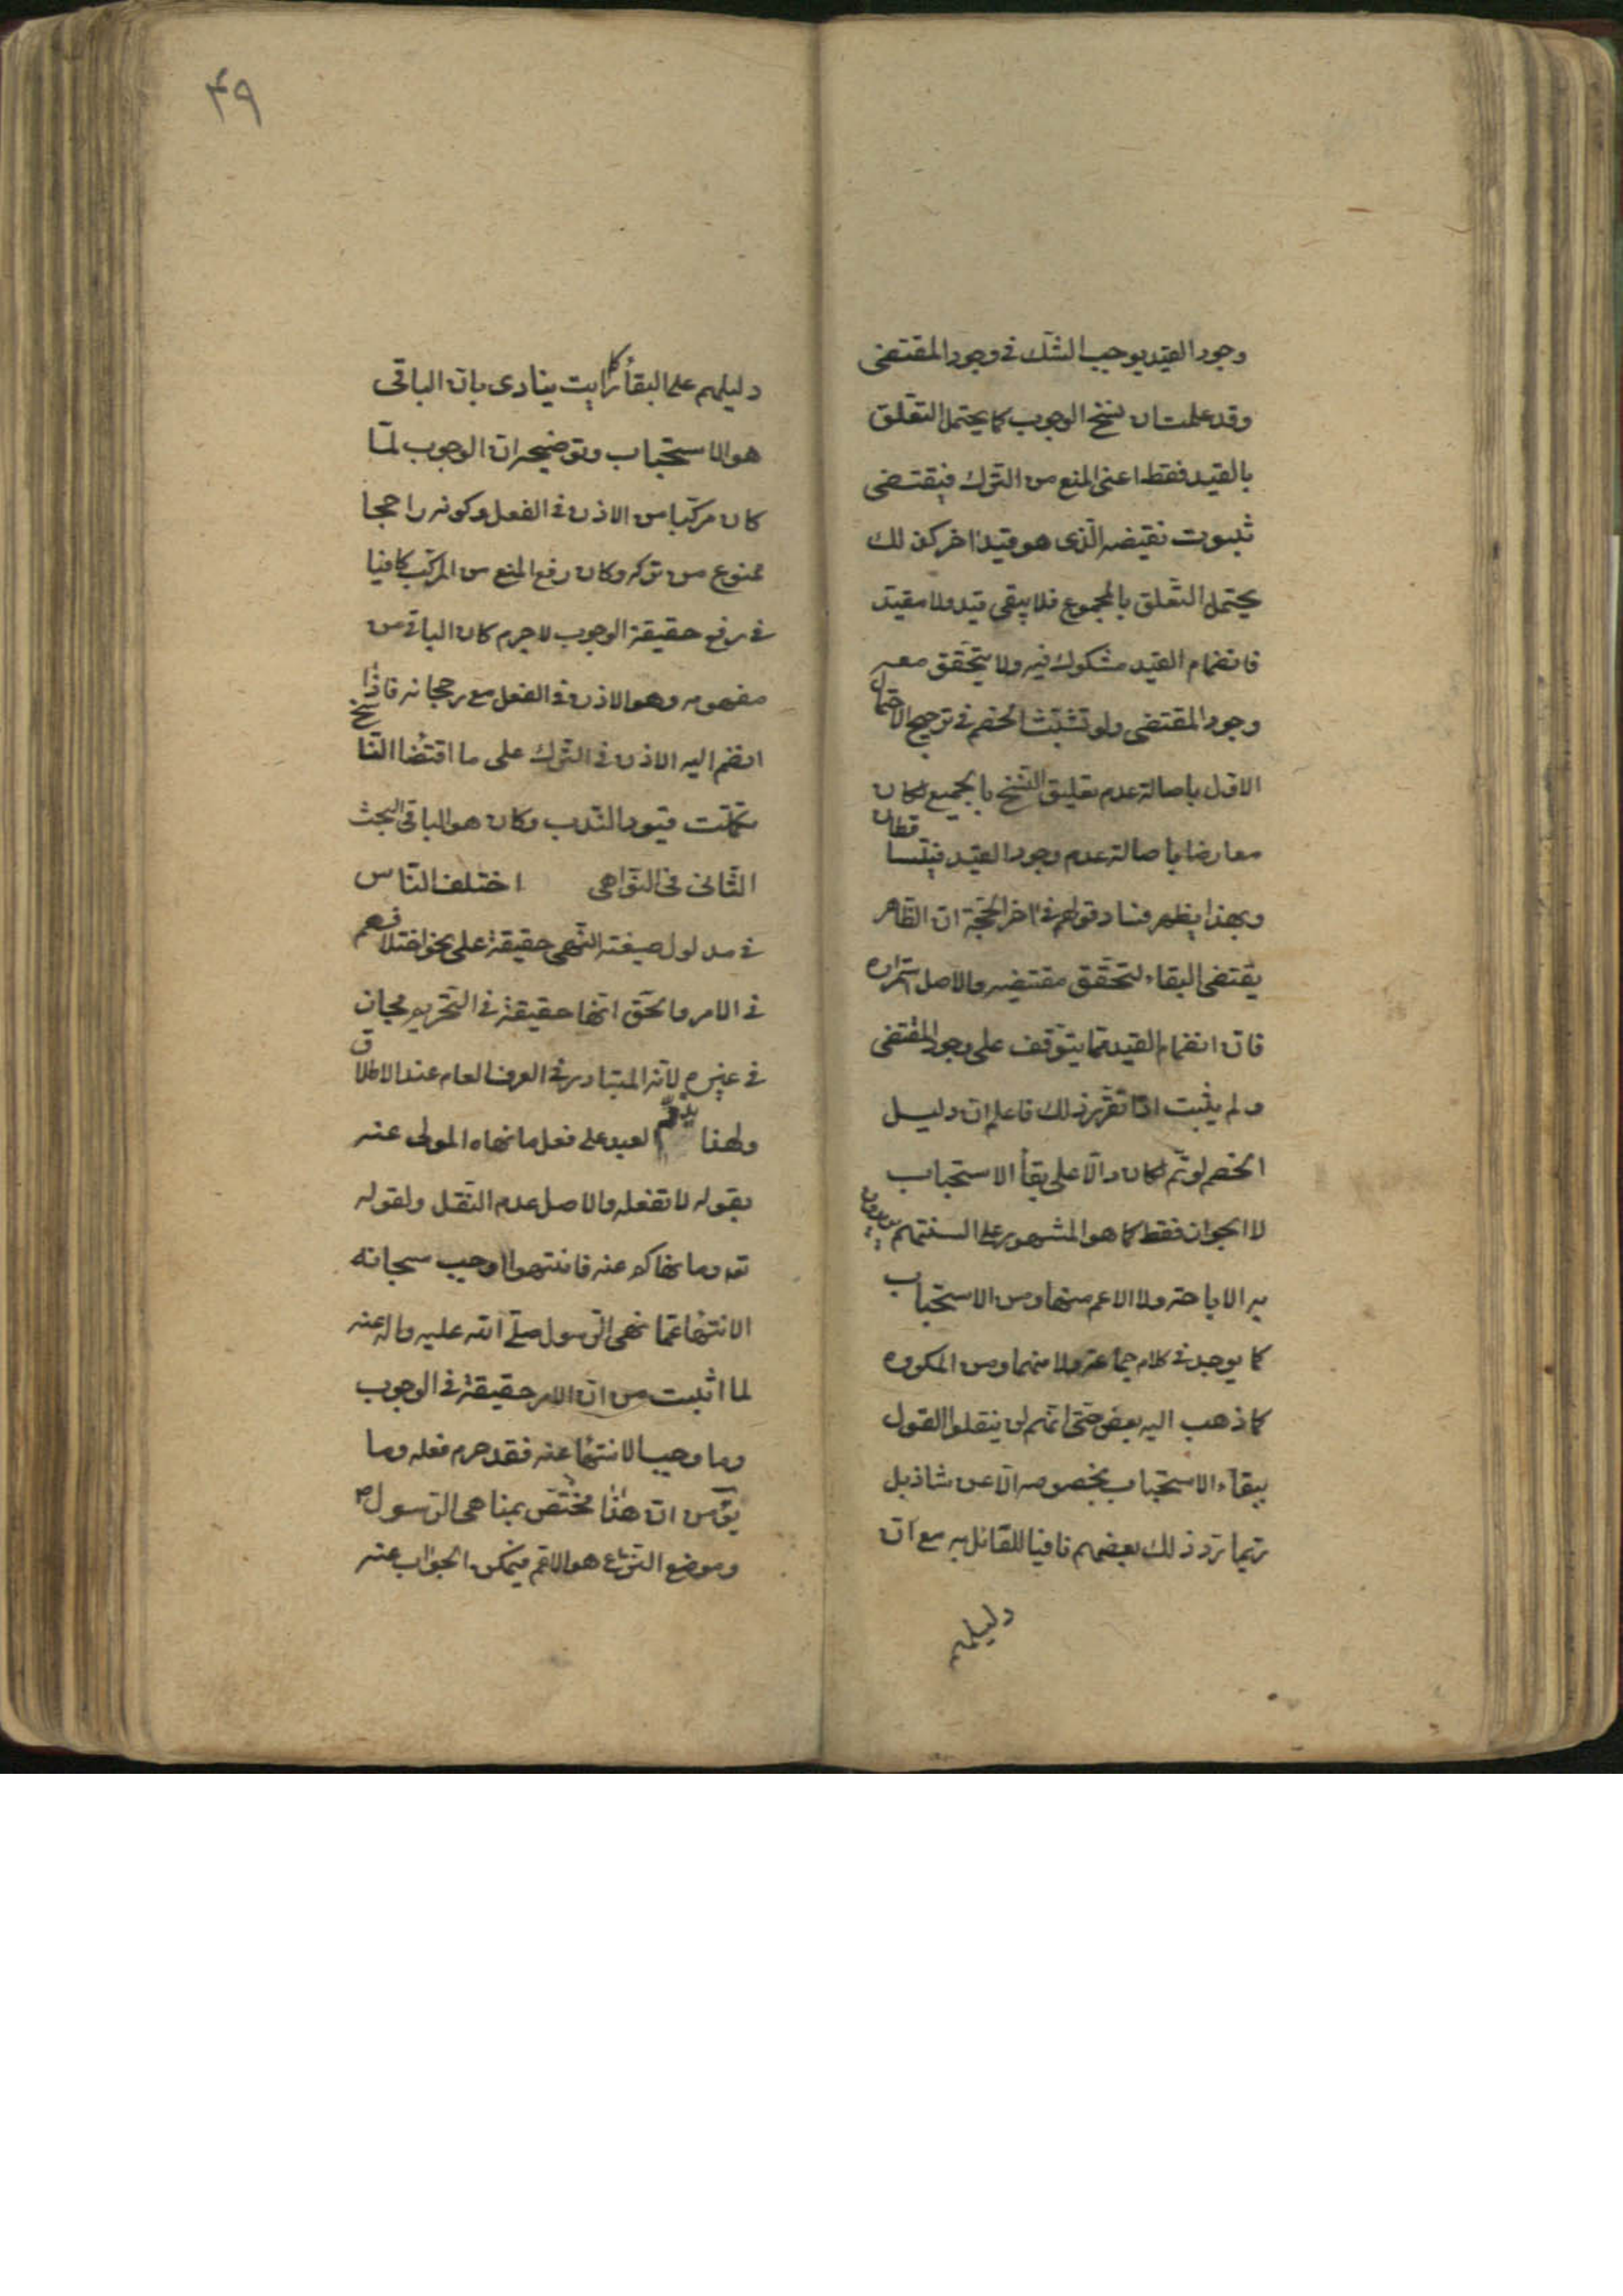 وجود القيد يوجب الشك في وجود المقتضى
وقد علمت ان نسخ الوجوب كما يحتمل التعلّق
بالقيد فقط اعنى المنع من الترك فيقتضى
ثبوت نقيضه الّذى هو قيد اخر كذلك
يحتمل التعلق بالمجموع فلا يبقى قيد ولا مقيّد
فانضمام القيد مشكوك فيه ولا يتحقق معه
وجود المقتضى ولو تشبّث الخصم في ترجيح الاحتمال
الاوّل باصالة عدم تعليق النسخ بالجميع لكان
معارضا باصالة عدم وجود القيد فيتساقطان
وبهذا يظهر فساد قولهم في اخر الحجّة ان الظاهر
يقتضى البقاء لتحقق مقتضيه والاصل استمراره
فان انضمام القيد مما يتوقف على وجود المقتضى
ولم يثبت اذا تقرر ذلك فاعلم ان دليل
الخصم لو تم لكان دالّا على بقاء الاستحباب
لا الجواز فقط كما هو المشهور على السنتهم يريدون
به الاباحة ولا الاعم منها ومن الاستحباب
كما يوجد في كلام جماعة ولا منهما ومن المكروه
كما ذهب اليه بعض حتى انّهم لم ينقلوا القول
ببقاء الاستحباب بخصوصه الّا عن شاذ بل
ربّما ردّ ذلك بعضهم نافيا للقائل به مع ان
دليلهم
۴۹
دليلهم على البقاء كما رايت ينادى بان الباقى
هو الاستحباب وتوضيحه ان الوجوب لمّا
كان مركّبا من الاذن في الفعل وكونه راجحا
ممنوع من تركه وكان رفع المنع من المركّب كافيا
في رفع حقيقة الوجوب لا جرم كان الباقى من
مفهومه وهو الاذن في الفعل مع رجحانه فاذا
انضم اليه الاذن في الترك على ما اقتضاه النّاسخ
تكمّلت قيود النّدب وكان هو الباقى البحث
الثّانى في النّواهى اختلف النّاس
في مدلول صيغة النّهى حقيقة على نحو اختلافهم
في الامر والحق انّها حقيقة في التحريم مجاز
في غيره لانّه المتبادر في العرف العام عند الاطلاق
ولهذا يذم العبد على فعل ما نهاه المولى عنه
بقوله لا تفعله والاصل عدم النّقل ولقوله
تعه وما نهاكم عنه فانتهوا اوجب سبحانه
الانتهاء عمّا نهى الرّسول صلّى الله عليه واله عنه
لما اثبت من ان الامر حقيقة في الوجوب
وما وجب الانتهاء عنه فقد حرم فعله وما
يقٓ من ان هذا مختصّ بمناهى الرّسول ص
وموضع النزاع هو الاعم فيمكن الجواب عنه